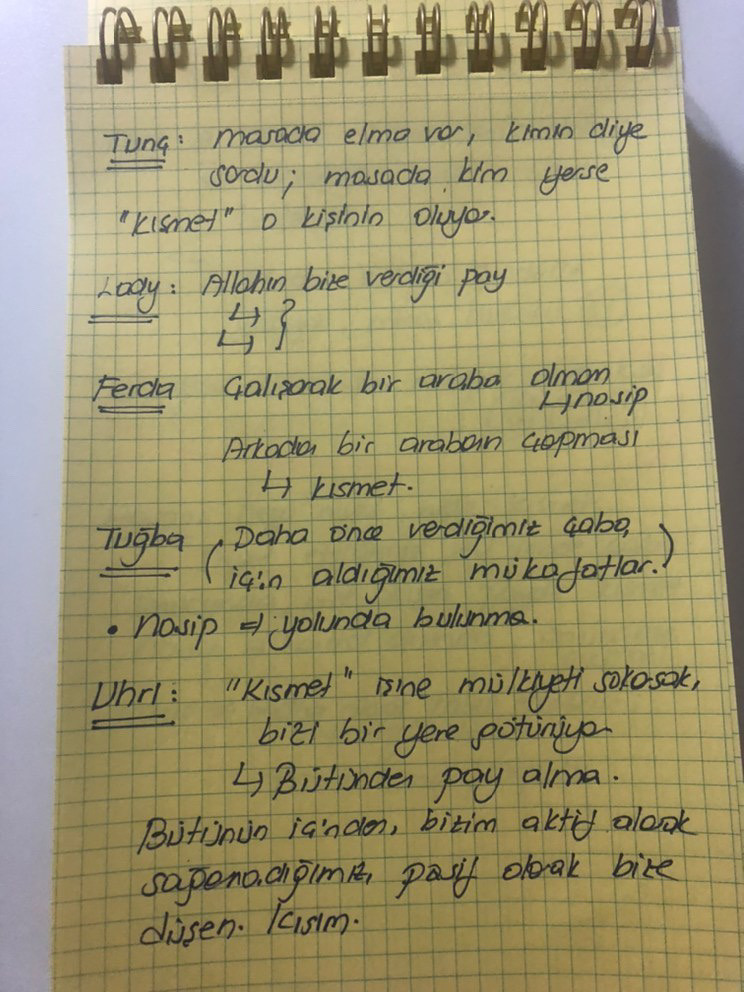 Tunç: masada elma var, kimin diye
sordu; masada kim yerse
"kısmet" o kişinin oluyo.
Lady: Allahın bize verdiği pay
↳ }
↳
Ferda Çalışarak bir araba alman
↳ nasip
Arkadan bir arabanın çapması
↳ kısmet.
Tuğba (Daha önce verdiğimiz çaba
için aldığımız mükafatlar.)
• nasip ⇒ yolunda bulunma.
Uhri: "Kısmet" işine mülkiyeti sokasak,
bizi bir yere götürüyo
↳ Bütünden pay alma.
Bütünün içinden, bizim aktif olarak
pasif olarak bize
düşen. kısım.